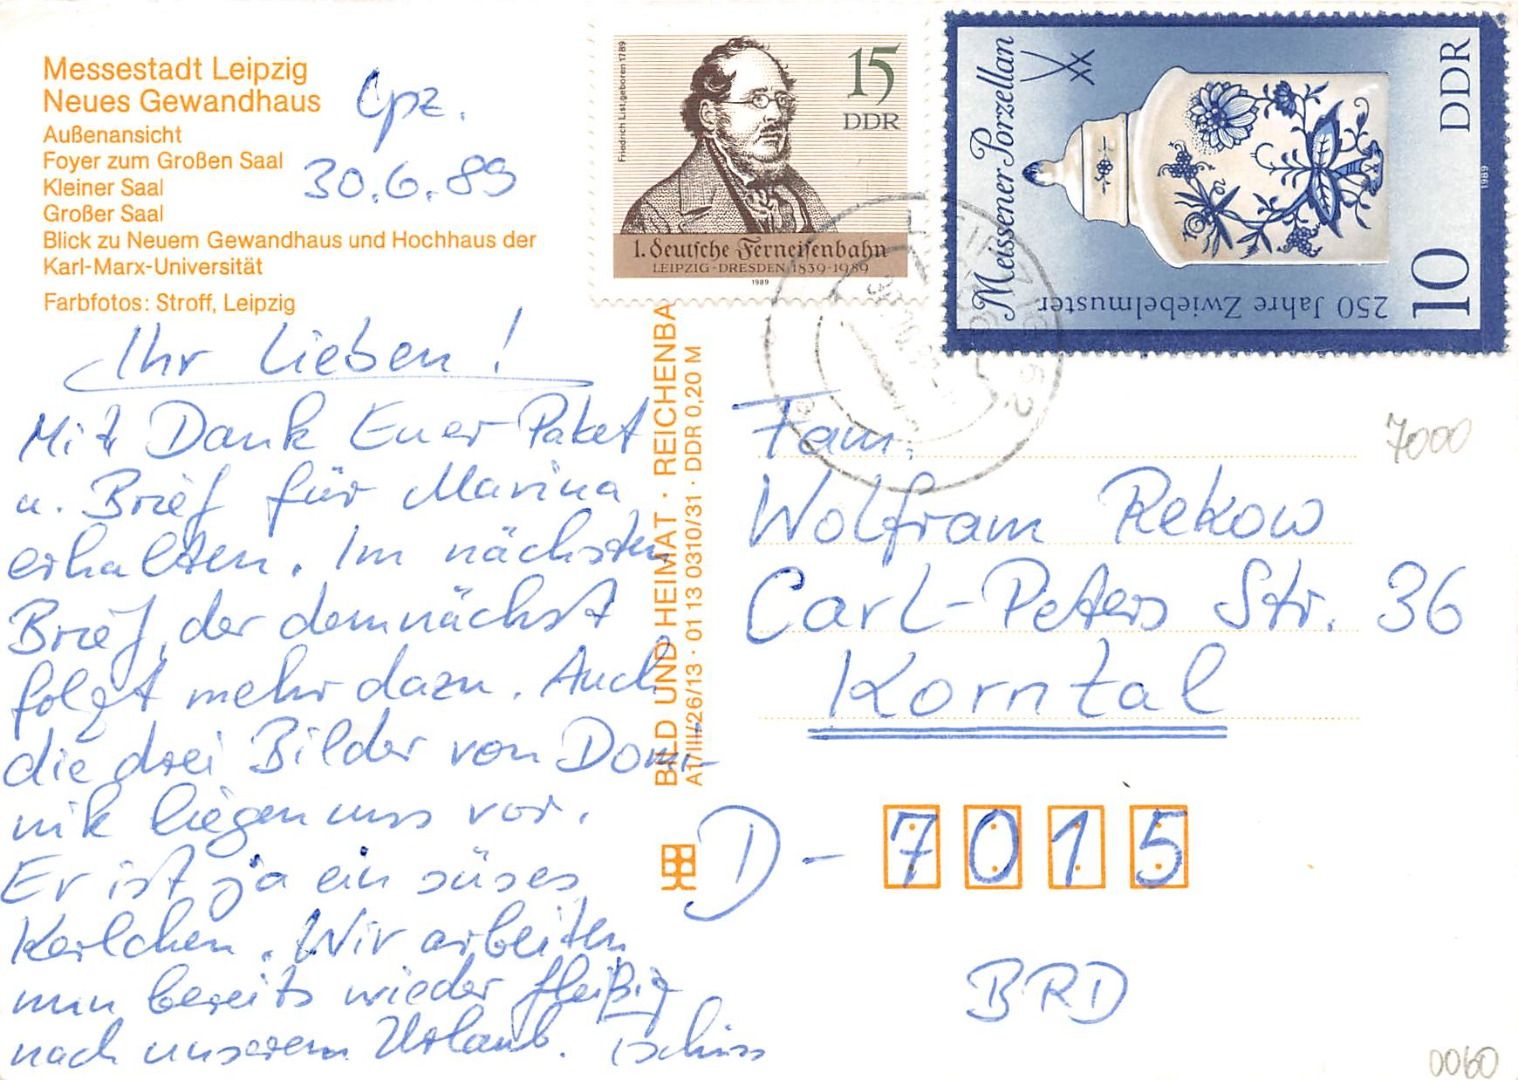 Messestadt Leipzig
Neues Gewandhaus
Außenansicht
Foyer zum Großen Saal
Kleiner Saal
Großer Saal
Blick zu Neuem Gewandhaus und Hochhaus der
Karl-Marx-Universität
Farbfotos: Stroff, Leipzig
Lpz.
30.6.89
Ihr Lieben!
Mit Dank Euer Paket
u. Brief für Marina
erhalten. Im nächsten
Brief, der demnächst
folgt mehr dazu. Auch
die drei Bilder von Domi-
nik liegen uns vor.
Er ist ja ein süses
Kerlchen. Wir arbeiten
nun bereits wieder fleißig
nach unserem Urlaub. Tschüss
BILD UND HEIMAT · REICHENBA
A1/III/26/13 · 01 13 0310/31 · DDR 0,20 M
Friedrich List, geboren 1789
15
DDR
1. deutsche Ferneisenbahn
LEIPZIG-DRESDEN 1839-1989
1989
Meissener Porzellan
250 Jahre Zwiebelmuster
10
DDR
1989
Fam.
Wolfram Rekow
Carl-Peters Str. 36
Korntal
D- 7015
BRD
7000
0060